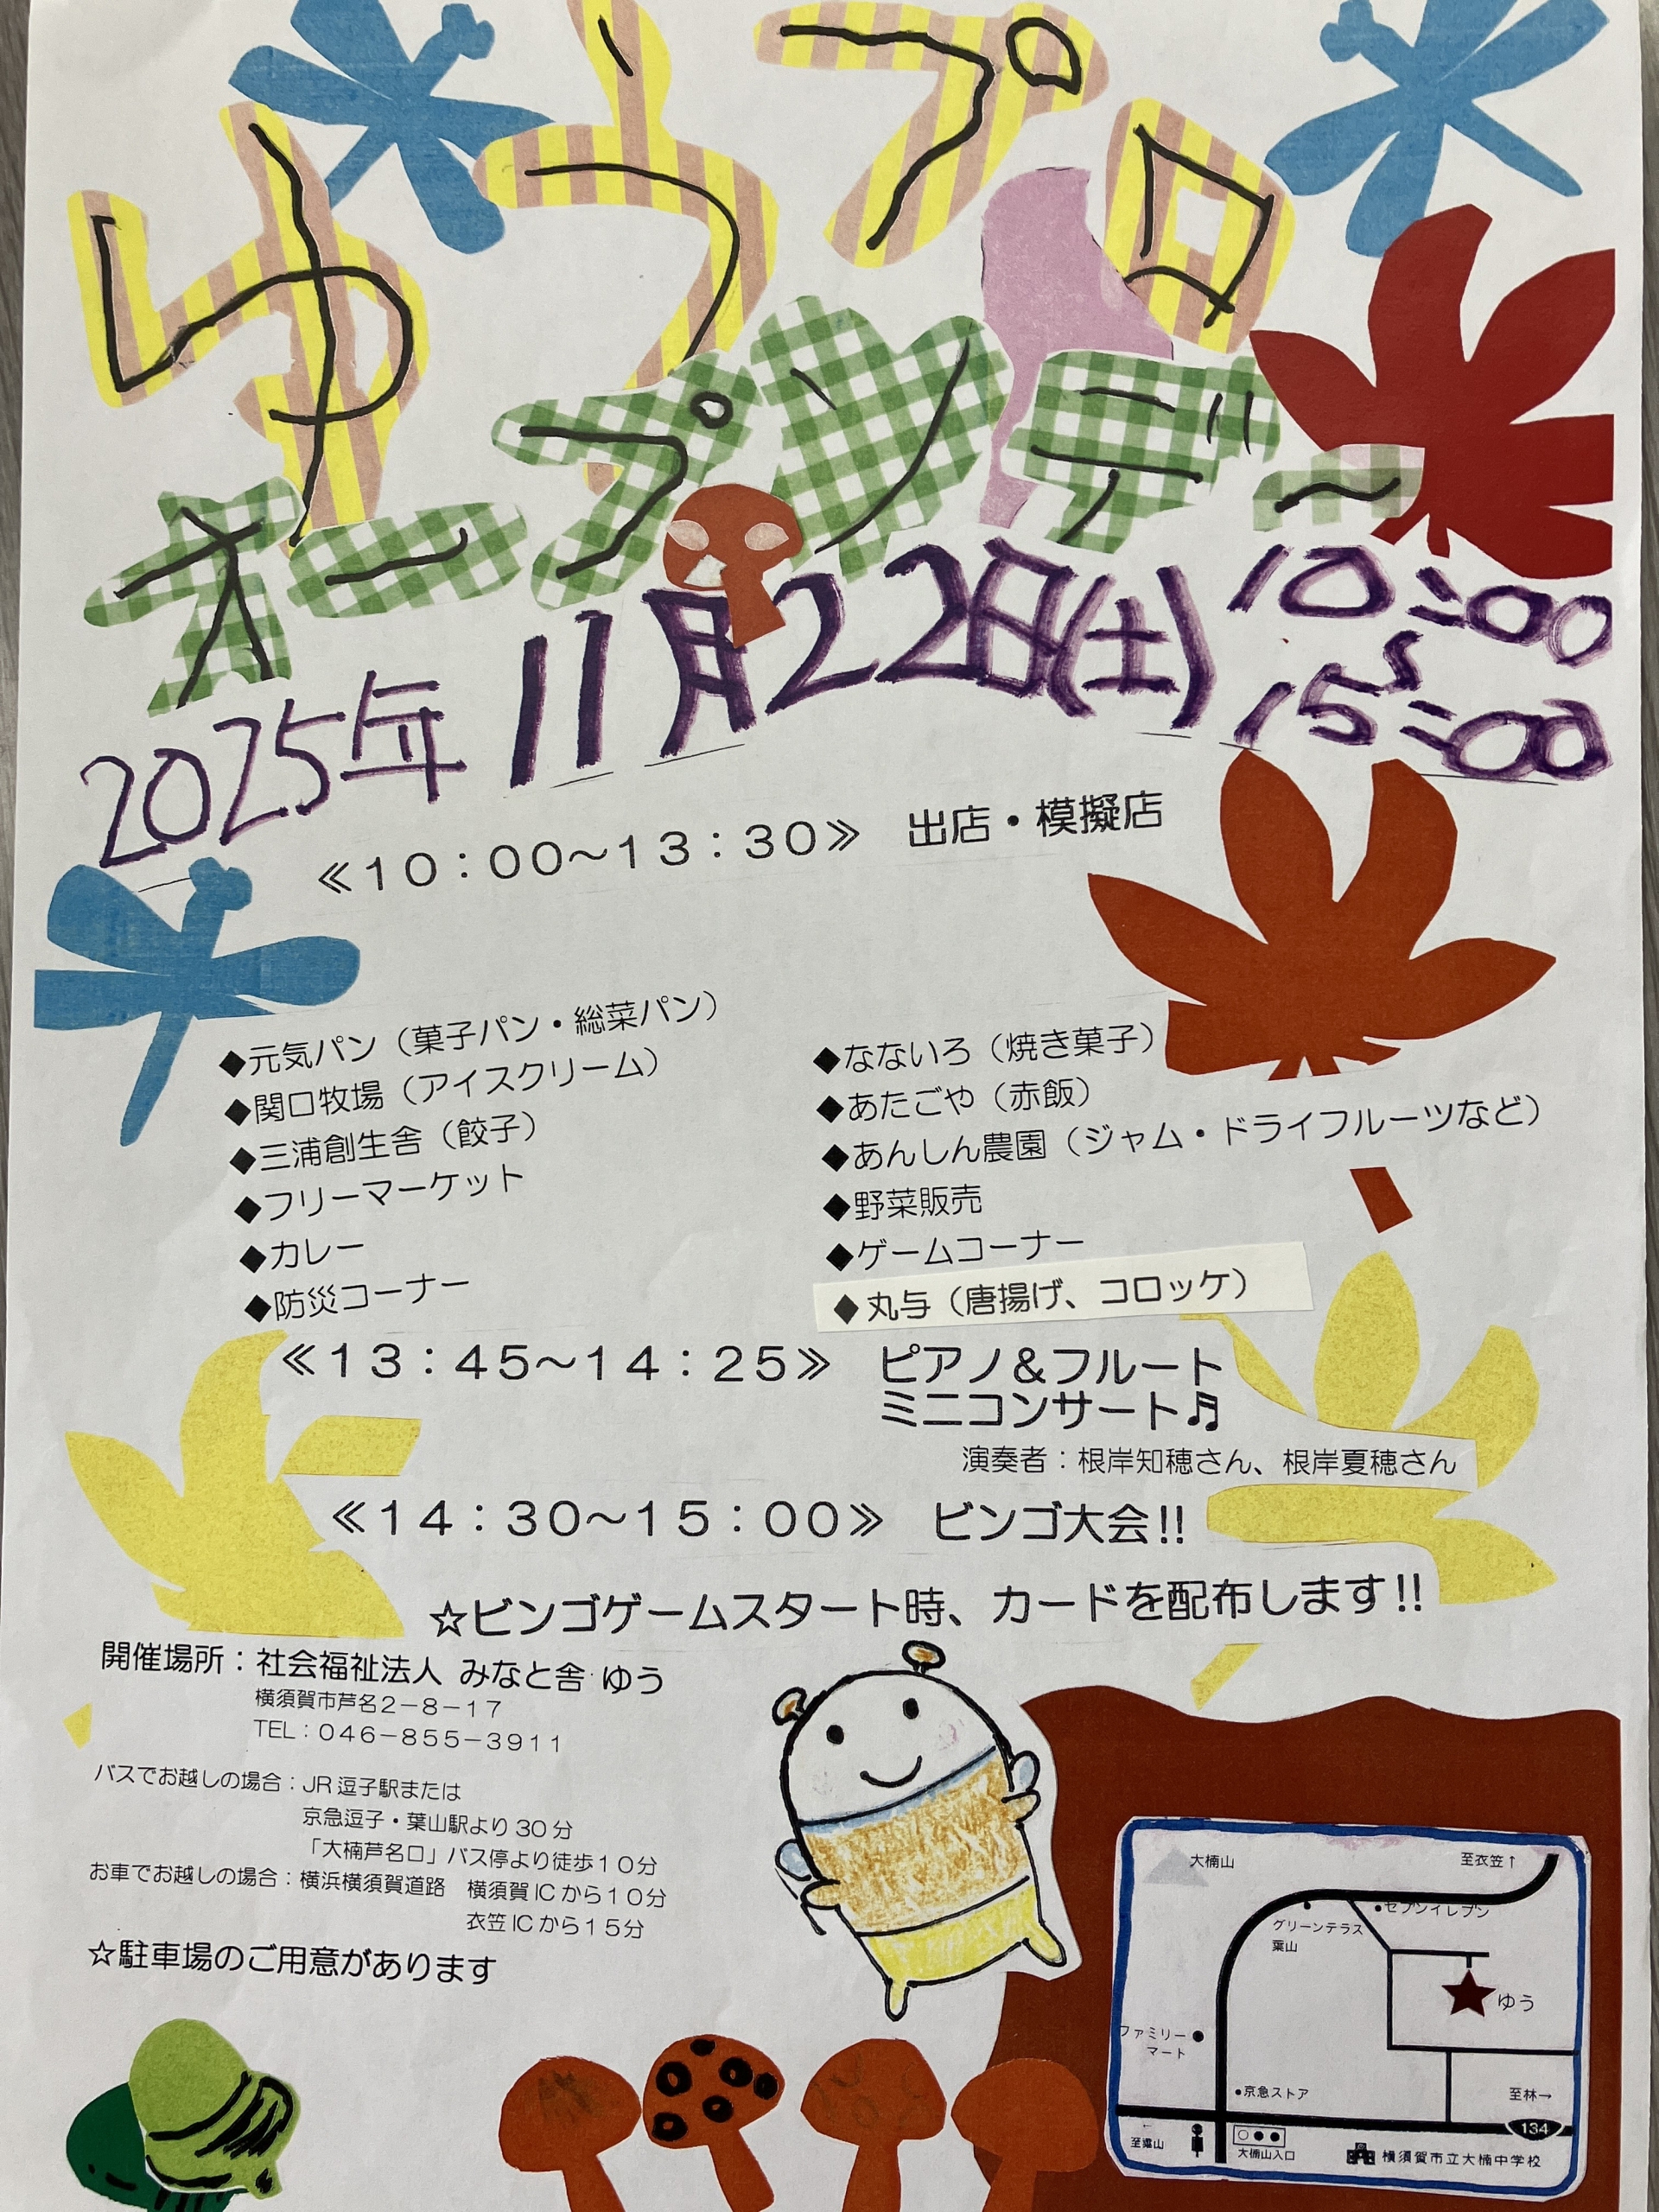 ゆうプロ
オープンデー
2025年 11月22日(土) 10:00
〜
15:00
≪10：00～13：30≫ 出店・模擬店
◆元気パン（菓子パン・総菜パン）
◆関口牧場（アイスクリーム）
◆三浦創生舎（餃子）
◆フリーマーケット
◆カレー
◆防災コーナー
◆なないろ（焼き菓子）
◆あたごや（赤飯）
◆あんしん農園（ジャム・ドライフルーツなど）
◆野菜販売
◆ゲームコーナー
◆丸与（唐揚げ、コロッケ）
≪13：45～14：25≫ ピアノ＆フルート
ミニコンサート♬
演奏者：根岸知穂さん、根岸夏穂さん
≪14：30～15：00≫ ビンゴ大会!!
☆ビンゴゲームスタート時、カードを配布します!!
開催場所：社会福祉法人 みなと舎 ゆう
横須賀市芦名2－8－17
TEL：046－855－3911
バスでお越しの場合：JR 逗子駅または
京急逗子・葉山駅より 30 分
「大楠芦名口」バス停より徒歩10分
お車でお越しの場合：横浜横須賀道路 横須賀 IC から10分
衣笠 IC から15分
☆駐車場のご用意があります
大楠山
至衣笠↑
セブンイレブン
グリーンテラス
葉山
ゆう
ファミリー
マート
京急ストア
至林→
134
←
至葉山
大楠山入口
横須賀市立大楠中学校